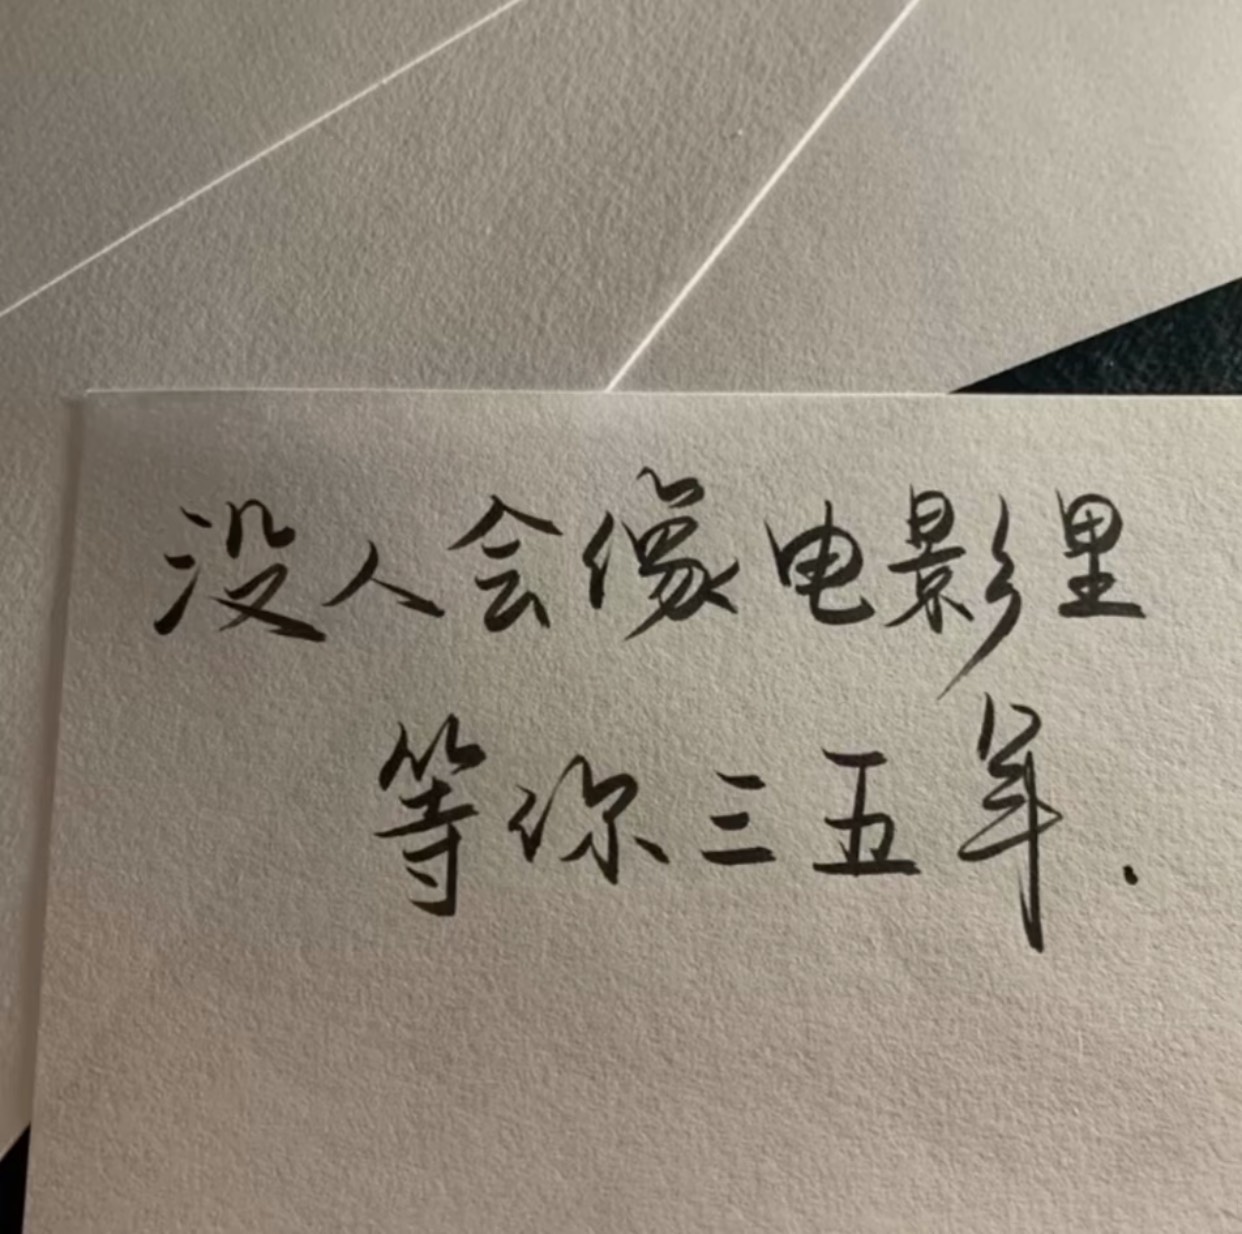 没人会像电影里
等你三五年.